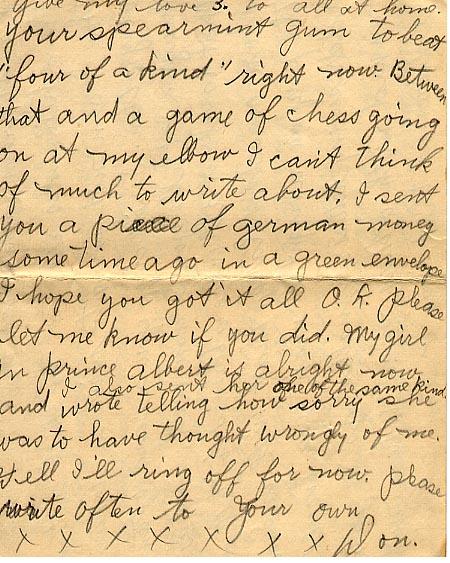 Give my love s. to all at home.
your spearmint gum to beat
"four of a kind" right now. Between
that and a game of chess going
on at my elbow I can't think
of much to write about. I sent
you a piece of german money
some time ago in a green envelope
I hope you got it all O.K. please
let me know if you did. My girl
in prince albert is alright now
I also sent her one of the same kind.
and wrote telling how sorry she
was to have thought wrongly of me.
Well I'll ring off for now. please
write often to your own
x x x x x x x Don.